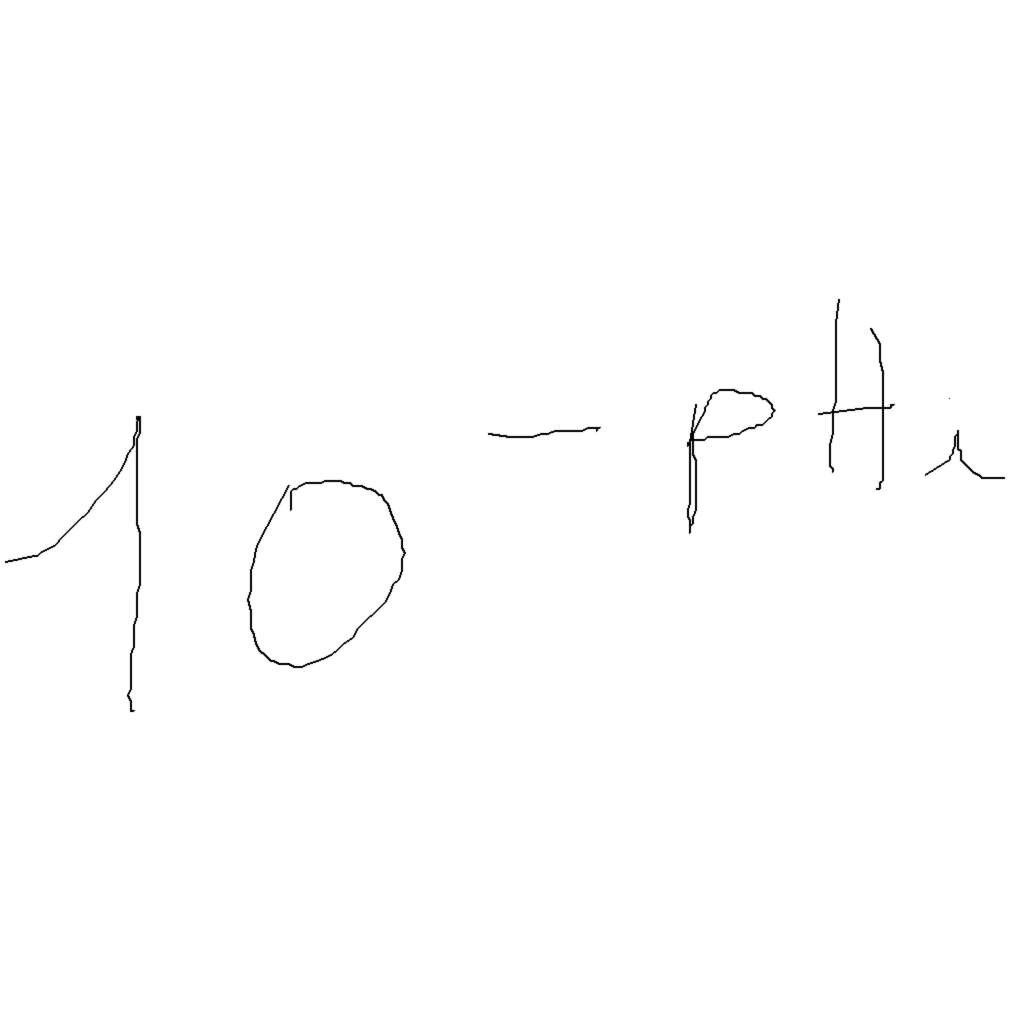 10 - pHi